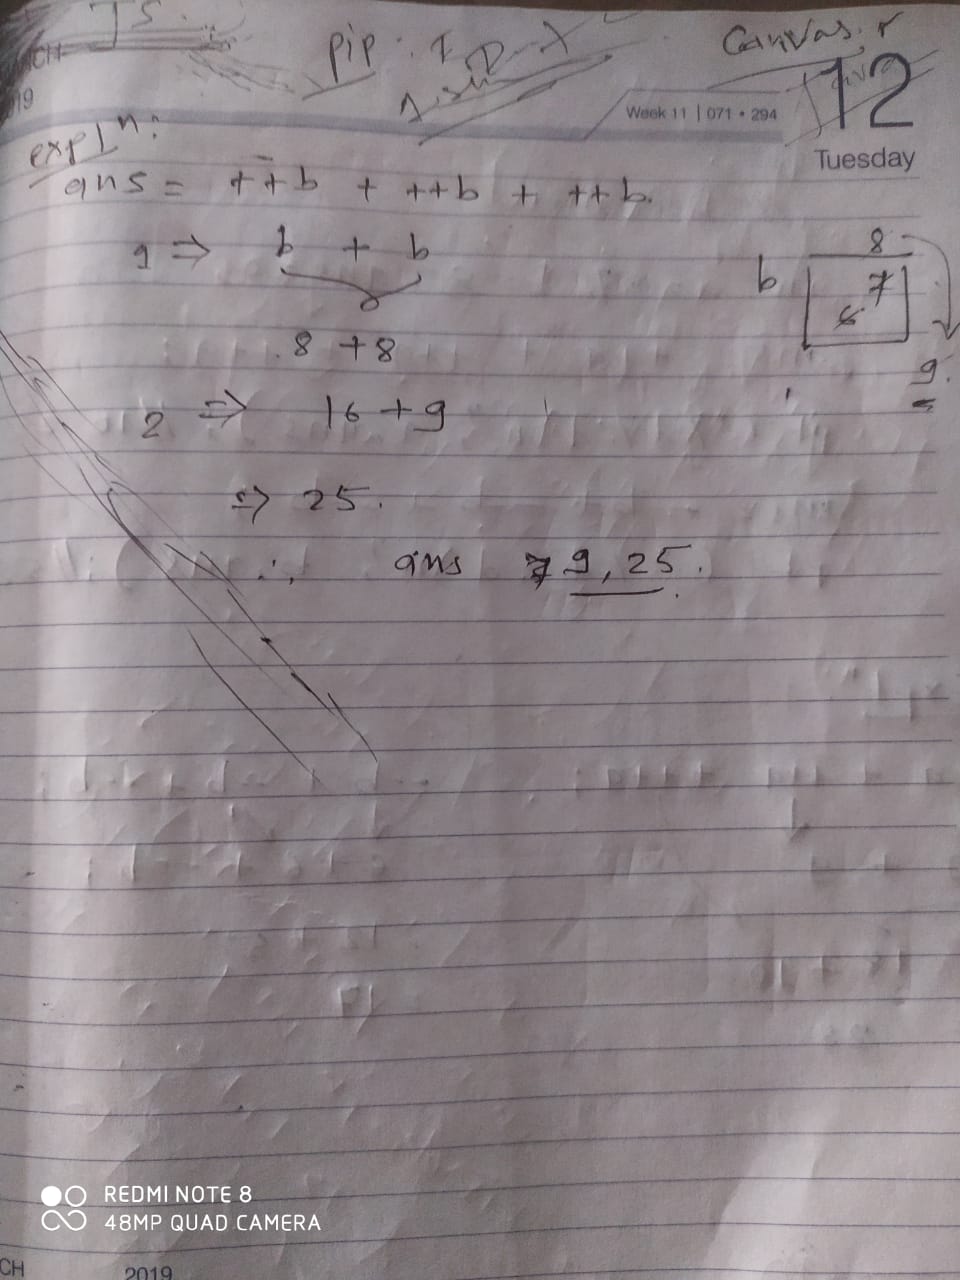 JS.
pip:
Canvas.
CH
19
Week 11 | 071 • 294
12
Tuesday
expl^n:
ans = ++b + ++b + ++b.
1 ⇒ b + b
8 + 8
2 ⇒ 16 + 9
⇒ 25.
∴ ans 9, 25.
8
b
7
6
9.
REDMI NOTE 8
48MP QUAD CAMERA
CH 2019